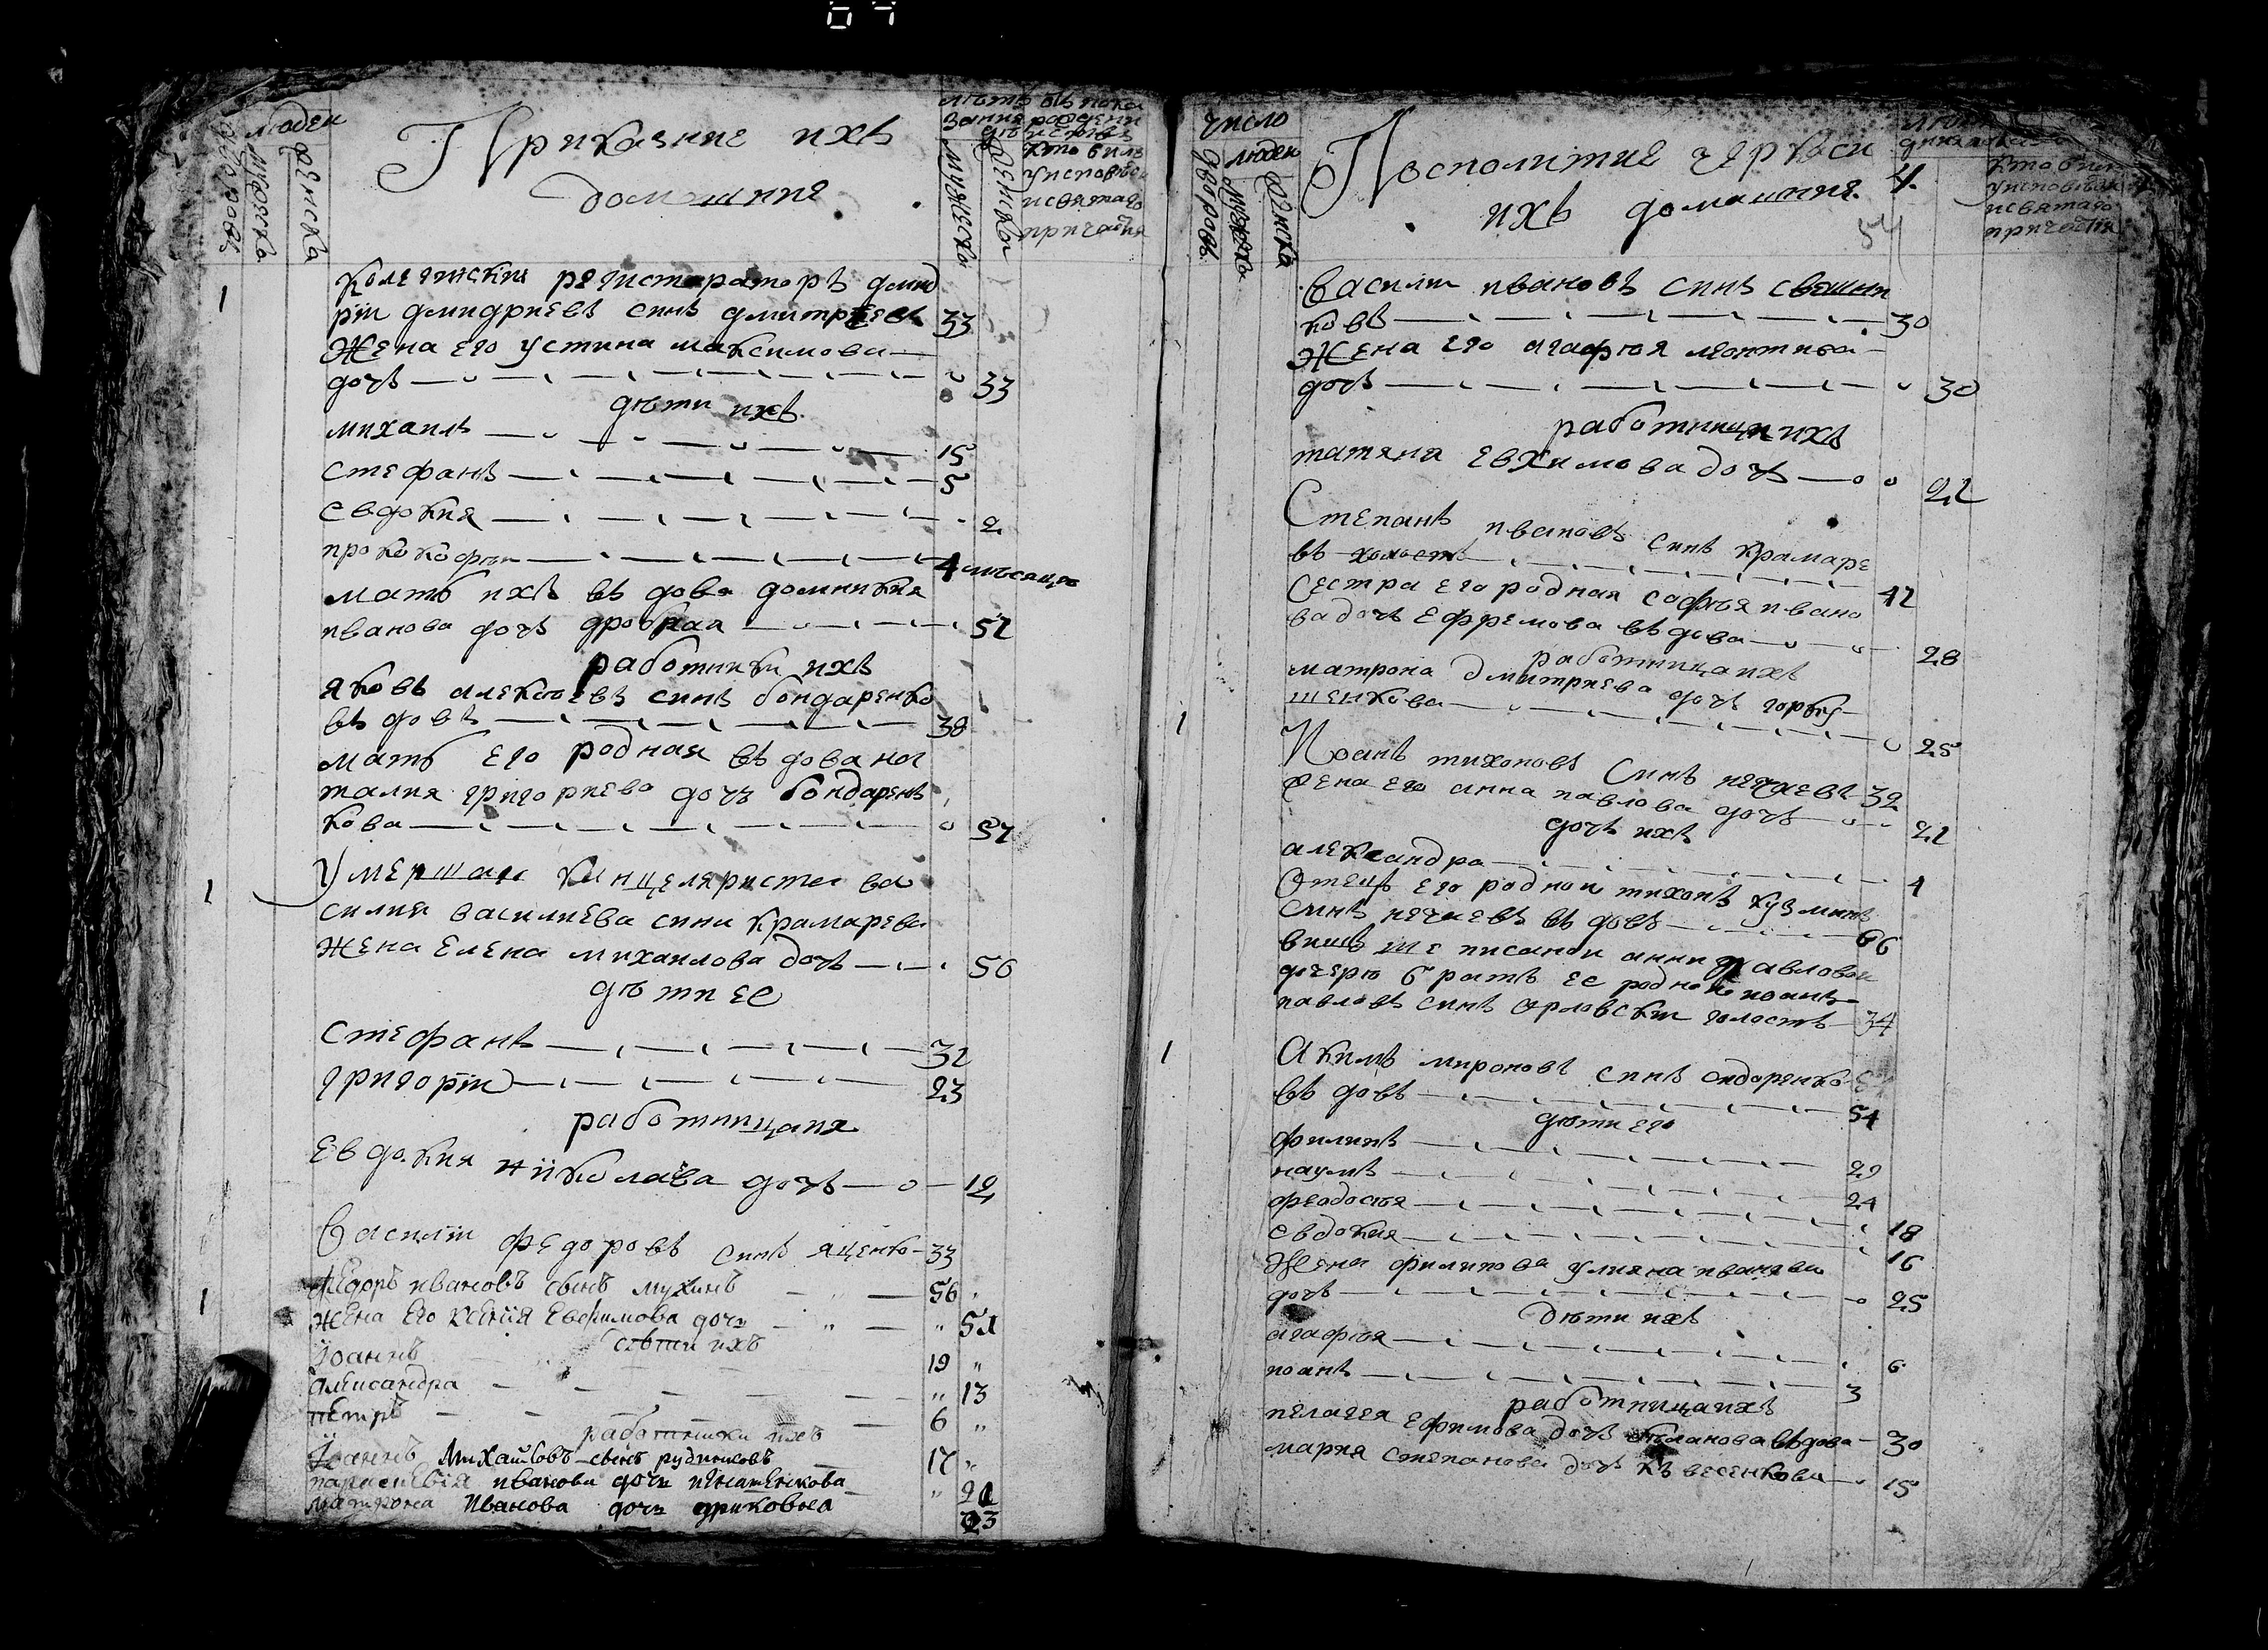 людей
дворовъ
мужеска
женска
Приказние ихъ
домашние
лѣтъ въ пока
мужеска
женска
кто билъ
у исповѣди
и святаго
причастия
1
Колегиский регистераторъ дмит
рій дмидриевъ синъ дмитрѣевъ 33
Жена его устина максимова
дочъ 33
дѣти ихъ
михаилъ 15
стефанъ 5
евдокия 2
прококофѣи 4 мѣсяцы
мать ихъ въ дова домникия
иванова дочъ дробная 52
работники ихъ
яковъ алексѣевъ синъ бондаренко
въ довъ 38
мать его родная въ дова на
талия григориева дочъ бондаренъ
кова 57
1
Умершаго канцеляриста ва
силия василиева сина крамарева
жена елена михаилова дочъ 56
дѣти ее
стефанъ 32
григорій 23
работница ихъ
евдокия николаева дочъ 19
Василій федоровъ синъ яценко 33
1
Федоръ ивановъ сынъ мухинъ 56
жена его ксения евфимова дочь 51
дѣти ихъ
Іоаннъ 19
александра 13
петръ 6
работники ихъ
Іоаннъ Михайловъ сынъ рудниковъ 17
параскевія иванова дочь
матрона иванова дочь 23
число
людей
дворовъ
мужеска
женска
Посполитие черкаси
ихъ домашния
4.
54
кто билъ
у исповѣди
и святаго
причастия
Василій ивановъ синъ свешни
ковъ 30
Жена его агафия леонтиева
дочъ 30
работница ихъ
татяна евхимова дочъ 22
Степанъ ивановъ синъ крамаре
въ холостъ 42
сестра его родная софѣя ивано
ва дочъ ефремова въдова 28
работница ихъ
матрона дмитриева дочъ горбу
шенкова 25
1
Иоанъ тихоновъ синъ нечаевъ 32
жена его анна павлова дочъ 22
дочъ ихъ
александра 4
Отецъ его родной тихонъ кузминъ
синъ нечаевъ въ довъ 66
више писаной анни павловой
дочери братъ ее родной иоанъ
павловъ синъ орловский холостъ 34
1
Акимъ мироновъ синъ сидоренко
въ довъ 54
дѣти его
филипъ 29
наумъ 24
феодосѣя 18
евдокия 16
Жена филипова улияна иванова
дочъ 25
дѣти ихъ
агафѣя 6
иоанъ 3
работница ихъ
пелагея ефимова дочъ въдова 30
мария степанова дочъ 15